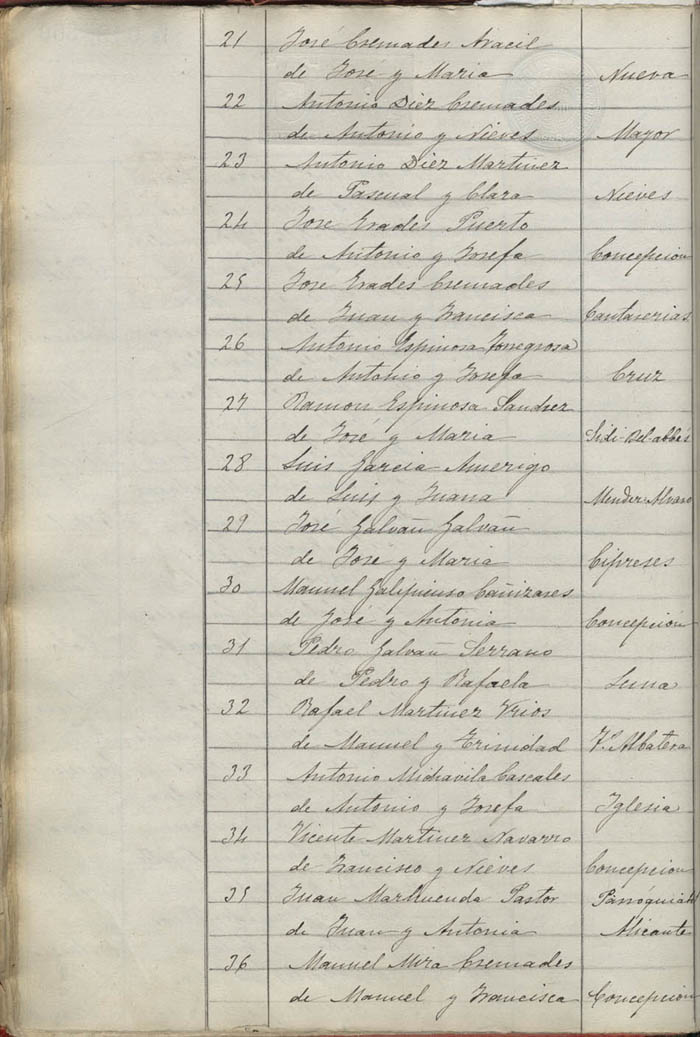 21 José Cremades Aracil
de José y Maria Nueva
22 Antonio Diez Cremades
de Antonio y Nieves Mayor
23 Antonio Diez Martinez
de Pascual y Clara Nieves
24 Jose Erades Puerto
de Antonio y Josefa Concepcion
25 Jose Erades Cremades
de Juan y Francisca Cantarerias
26 Antonio Espinosa Torregrosa
de Antonio y Josefa Cruz
27 Ramon Espinosa Sanchez
de José y Maria Sidi-Bel-abbés
28 Luis Garcia Amerigo
de Luis y Juana Mendez-Alvaro
29 José Galvañ Galvañ
de José y Maria Cipreses
30 Manuel Galipienso Cañizares
de José y Antonia Concepción
31 Pedro Galvañ Serrano
de Pedro y Rafaela Luna
32 Rafael Martinez Vrios
de Manuel y Trinidad Albatera
33 Antonio Midravila Cascales
de Antonio y Josefa Iglesia
34 Vicente Martinez Navarro
de Francisco y Nieves Concepcion
35 Juan Marhuenda Pastor Parróquia
de Juan y Antonia Alicante
36 Manuel Mira Cremades
de Manuel y Francisca Concepcion